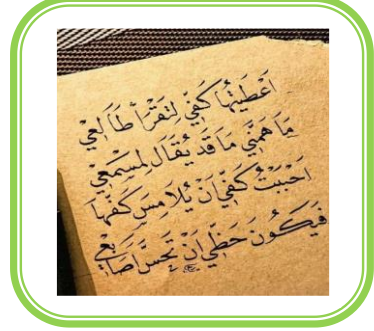 أَعْطَيْتُهَا كَفِّي لِتَقْرَأَ طَالِعِي
مَا هَمَّنِي مَا قَدْ يُقَالُ لِمِسْمَعِي
أَحْبَبْتُ كَفِّي أَنْ يُلَامِسَ كَفَّهَا
فَيَكُونَ حَظِّي أَنْ تَحُسَّ أَصَابِعِي